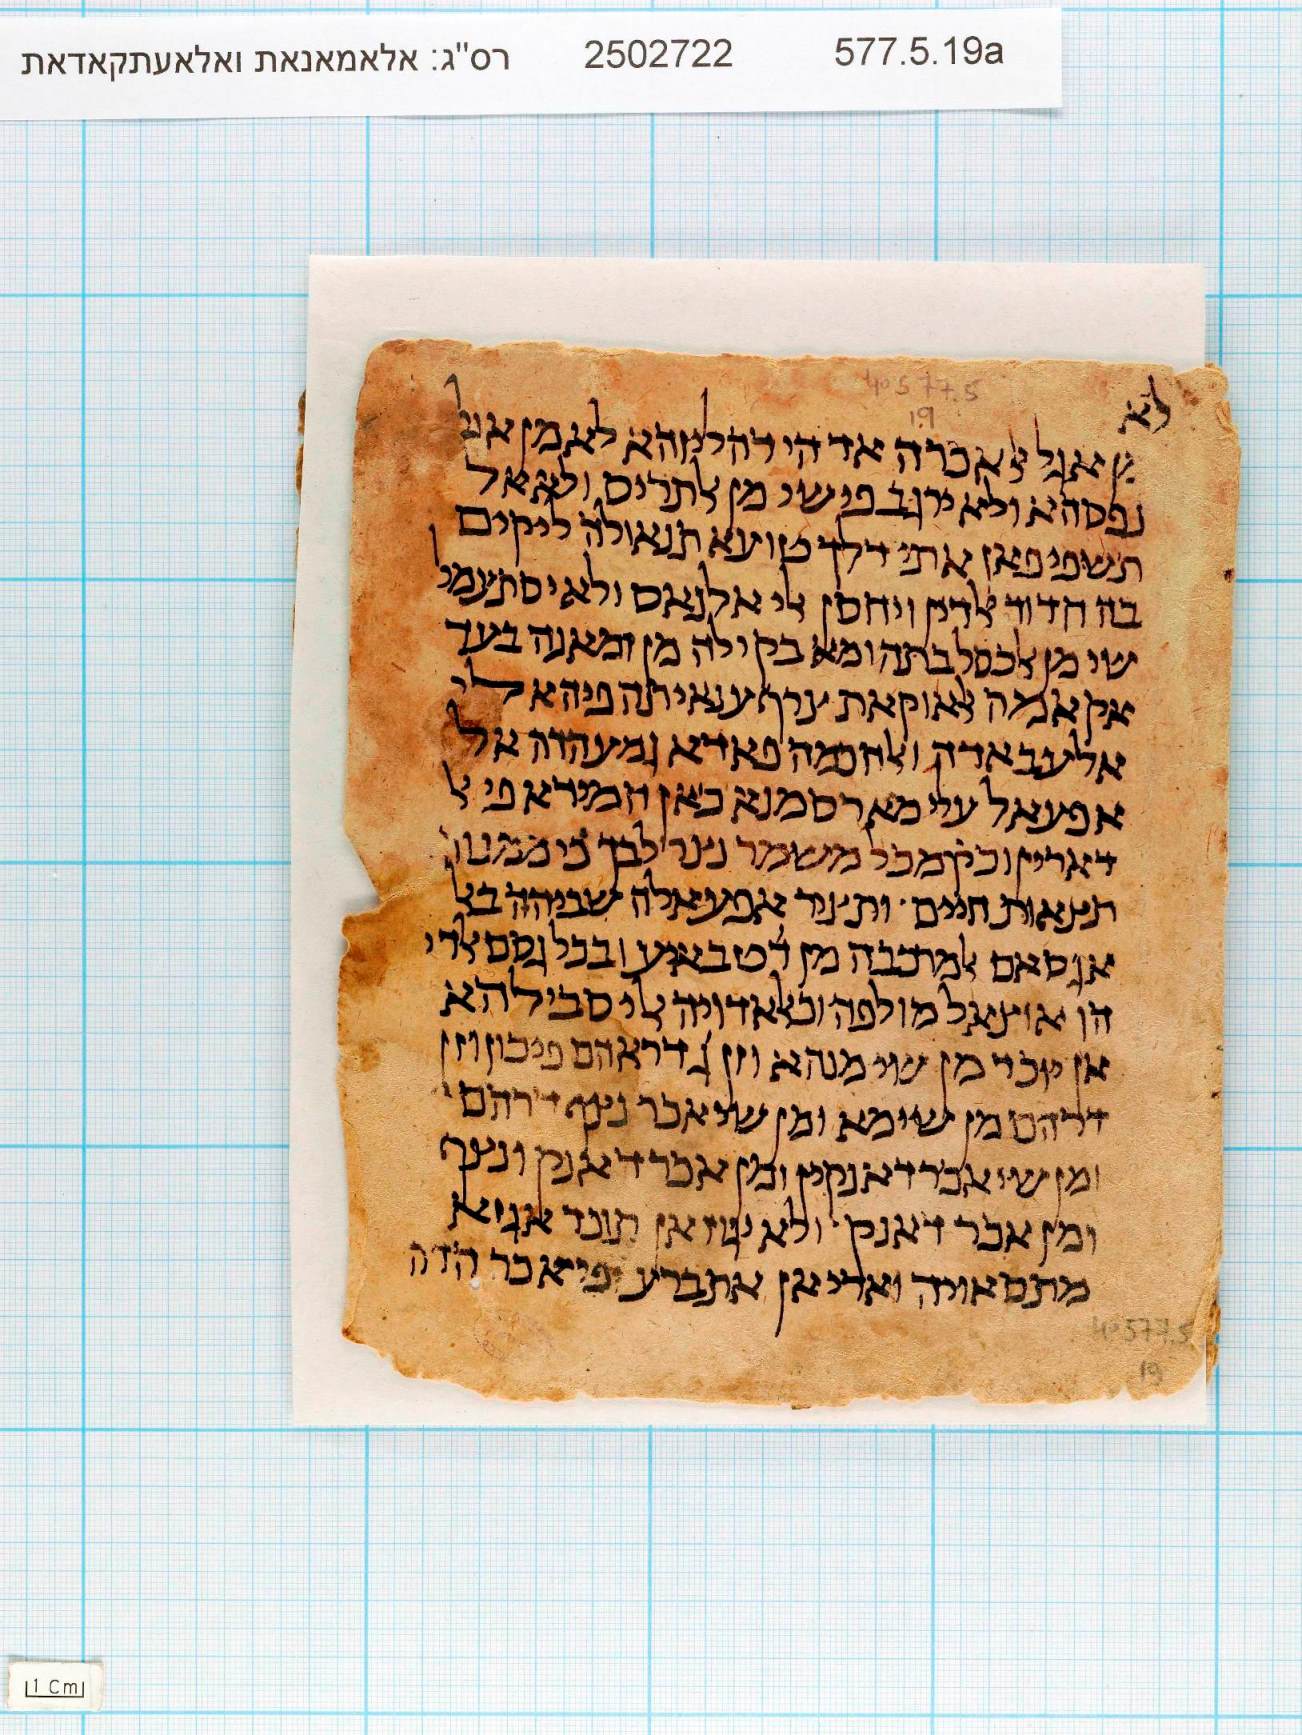 577.5.19a 2502722 רס"ג: אלאמאנאת ואלאעתקאדאת
4° 577.5
19
לא
מן אגל אלאכרה אד הי רחלתהא לא מן אגל
נפסהא ולא ירגב פי שי מן אלתריס ולא אל
תשפי פאן אתי דלך טועא תנאולה ליקים
בה חדוד אלדין ויחסן אלי אלנאס ולא יסתעמל
שי מן אלכסל בתה ומא בקי לה מן זמאנה בעד
אקאמה אלאוקאת יצרף ענאיתה פיהא אלי
אלעבאדה ואלחכמה פאדא גמע הדה אל
אפעאל עלי מא רסמנא כאן חמידא פי אל
דארין וכק מכל משמר נצר לבך כי ממנו
תוצאות חיים. ותציר אפעאלה שביהה בא
אגסאם אלמרכבה מן אלטבאיע ובכל גסם אלדי
הן אוצאל מולפה וכאלאדויה אלי סבילהא
אן יוכד מן שי מנהא וזן ג דראהם פיכון וזן
דרהם מן שי מא ומן שי אכר נצף דרהם
ומן שי אכר דאנקין ומן אכר דאנק ונצף
ומן אכר דאנק. ולא יגוז אן תוכד אגזא
מתסאויה ואלי אן אתברע פי אכר הדה
4° 577.5
19
1 Cm